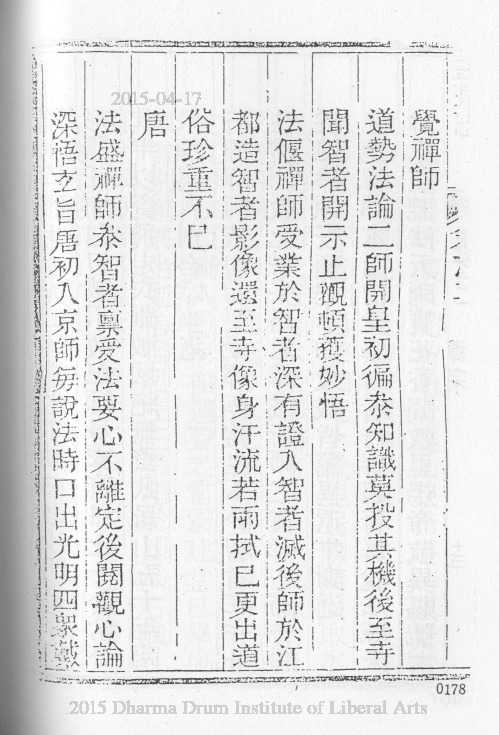 覺禪師
道勢法論二師開皇初徧叅知識莫投其機後至寺
聞智者開示止觀頓獲妙悟
法偃禪師受業於智者深有證入智者滅後師於江
都造智者影像還至寺像身汗流若雨拭已更出道
俗珍重不已
唐
法盛禪師叅智者禀受法要心不離定後閱觀心論
深悟玄旨唐初入京師每說法時口出光明四衆戴
0178
2015-04-17
2015 Dharma Drum Institute of Liberal Arts